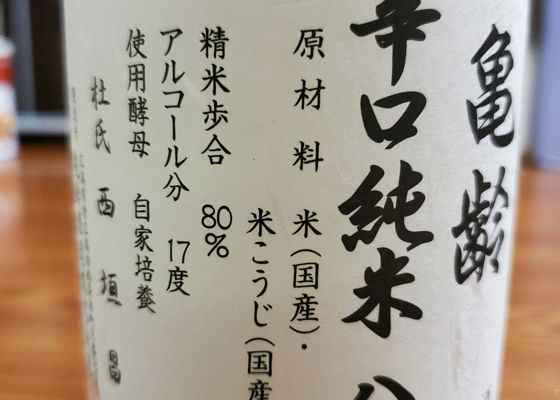 亀齢
辛口純米 八
原材料 米(国産)・
米こうじ(国産
精米歩合 80%
アルコール分 17度
使用酵母 自家培養
杜氏 西垣昌